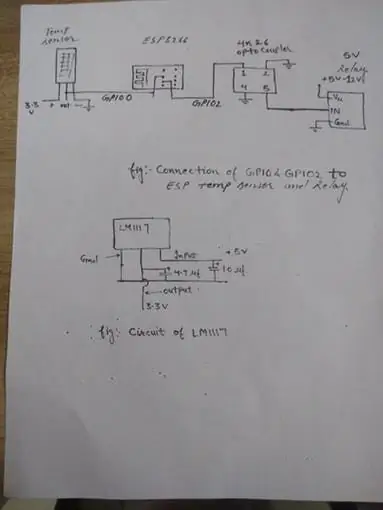 Temp
sensor
ESP8266
4n26
optocoupler
5V
Relay
+5V-12V
1 2
4 5
Vcc
IN
Gnd
3.3
V
+ out -
GPIO0
GPIO2
fig:- Connection of GPIO & GPIO2 to
ESP Temp sensor and Relay
LM1117
Gnd
Input
+5V
4.7 uf
10 uf
output
3.3V
fig: Circuit of LM1117